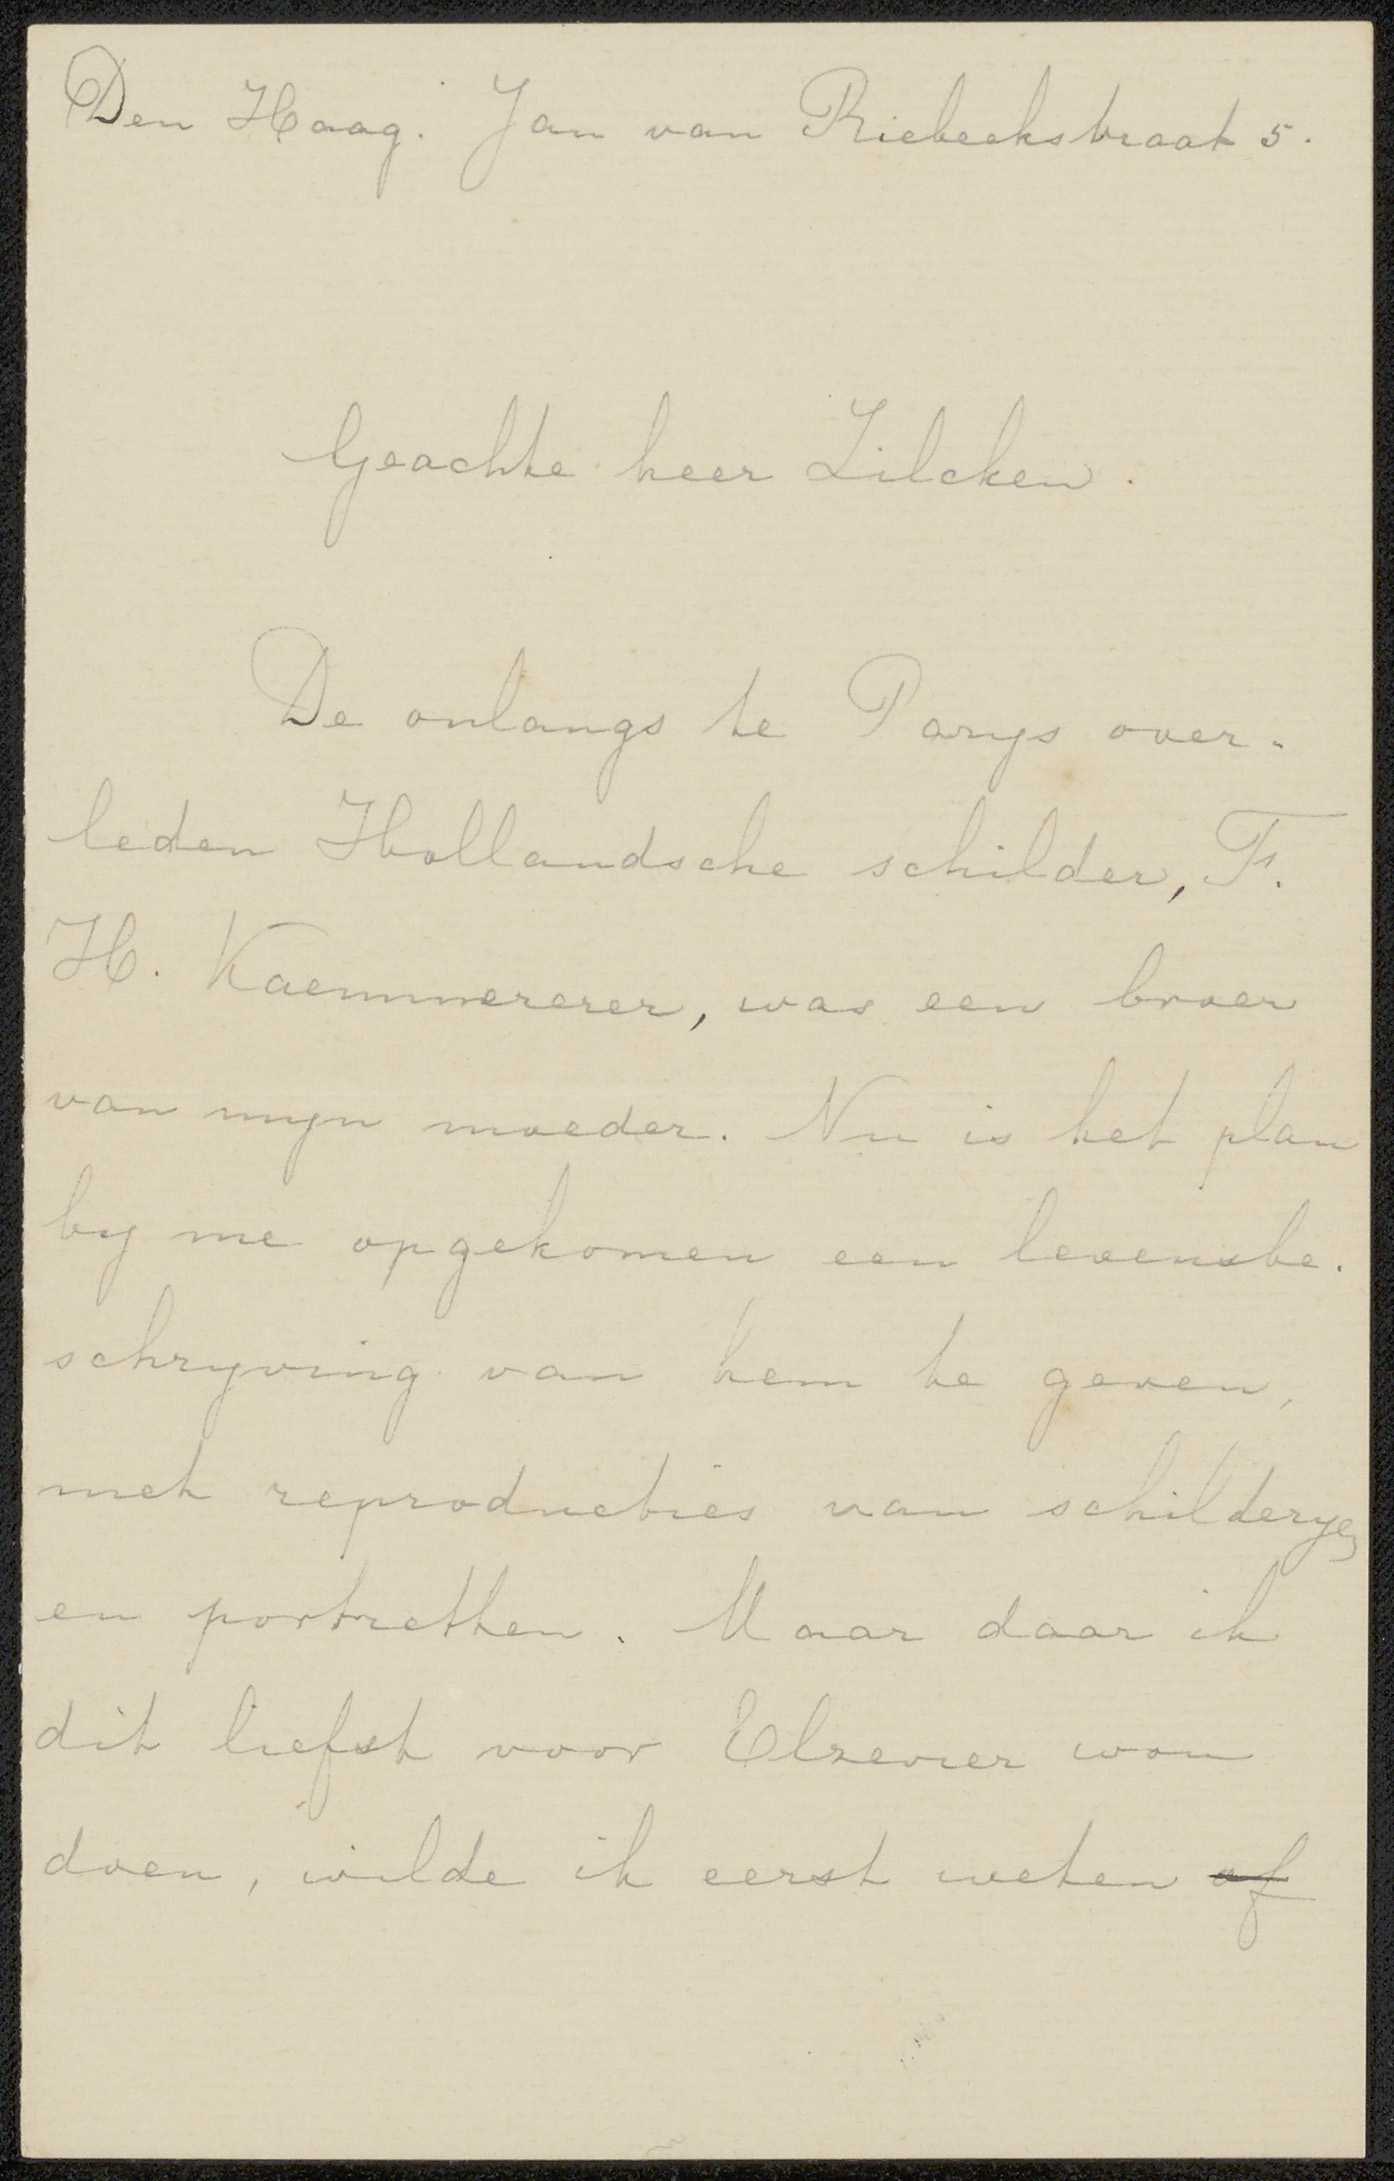 Den Haag. Jan van Riebeekstraat 5.
Geachte heer Zilcken.
De onlangs te Parys over-
leden Hollandsche schilder, F.
H. Kaemmererer, was een broer
van myn moeder. Nu is het plan
by me opgekomen een levensbe-
schryving van hem te geven,
met reproducties van schilderyen
en portretten. Maar daar ik
dit liefst voor Elsevier wou
doen, wilde ik eerst weten of